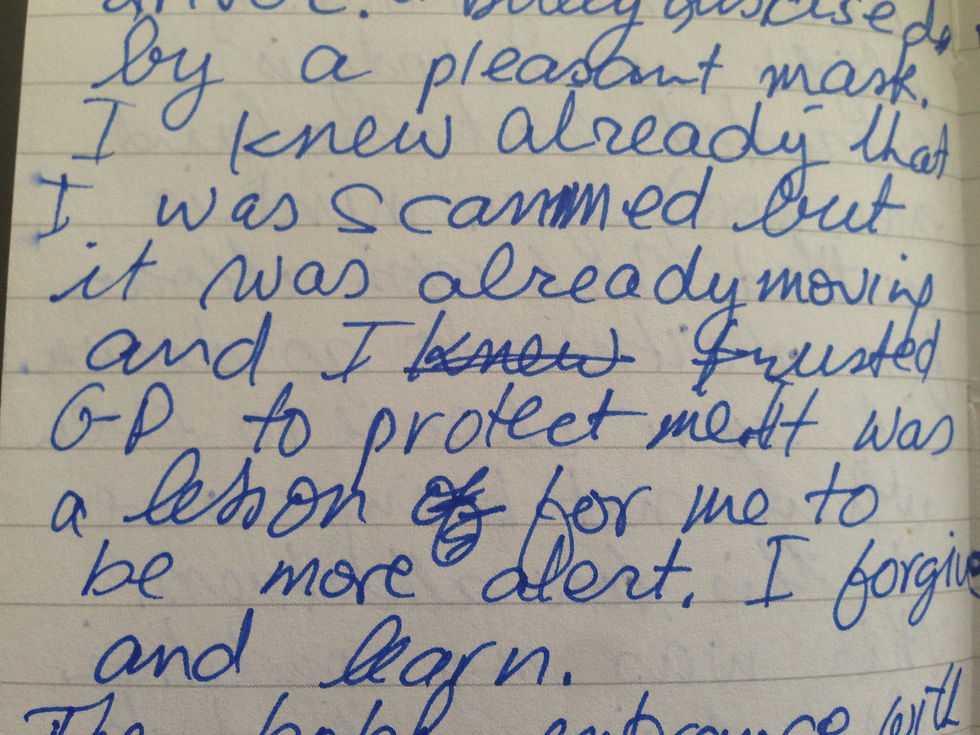 by a pleasant mask.
I knew already that
I was scammed but
it was already moving
and I ~~knew~~ trusted
GP to protect me. It was
a lesson for me to
be more alert. I forgive
and learn.
The entrance with